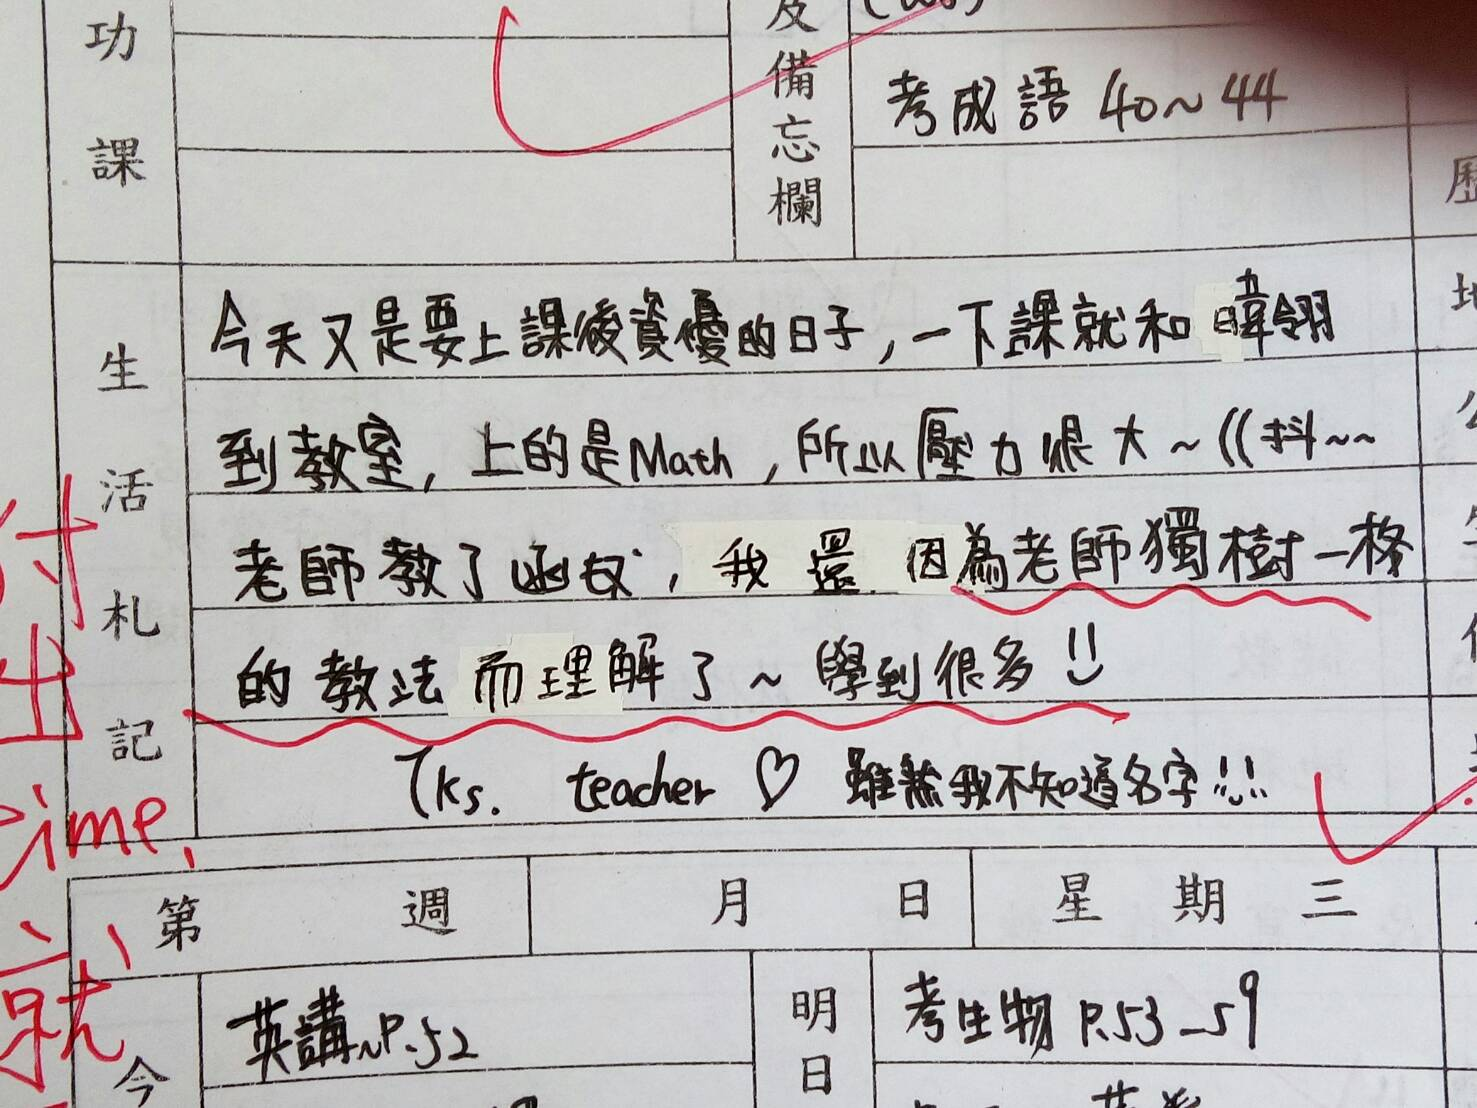 功課
及備忘欄
考成語 40~44
歷
生活札記
今天又是要上課後資優的日子，一下課就和暐翎
到教室，上的是Math，所以壓力很大~((抖~~
老師教了函數，我還 因為老師獨樹一格
的教法而理解了~ 學到很多!!
Tks. teacher ♡ 雖然我不知道名字!!!
地
公
付出
time,
就
第 週 月 日 星期三
今
英講~P.52
明日
考生物 P.53_59